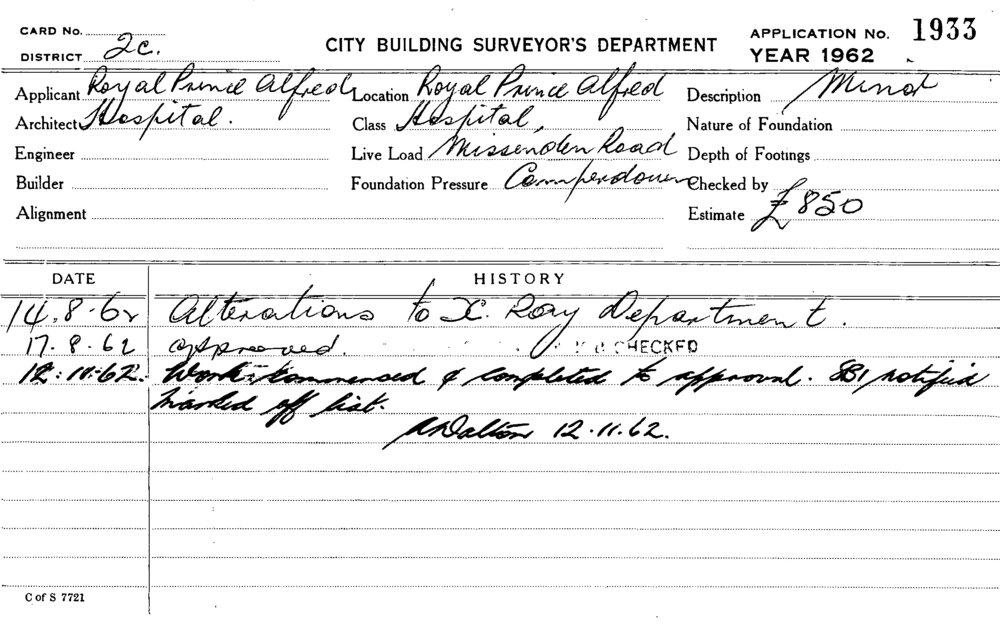 CARD No.
DISTRICT 2c.
CITY BUILDING SURVEYOR'S DEPARTMENT
APPLICATION No. 1933
YEAR 1962
Applicant Royal Prince Alfred Location Royal Prince Alfred Description Minor
Architect Hospital. Class Hospital, Nature of Foundation
Engineer Live Load Missenden Road Depth of Footings
Builder Foundation Pressure Camperdown Checked by
Alignment Estimate £850
DATE HISTORY
14.8.62 Alterations to X. Ray Department.
17.8.62 approved. CHECKED
12.11.62. Work commenced & completed to approval. SBI notified
marked off list.
ADalton 12.11.62.
C of S 7721